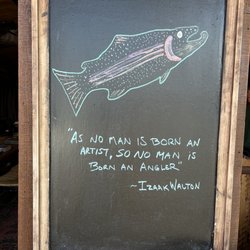 "AS NO MAN IS BORN AN
ARTIST, SO NO MAN IS
BORN AN ANGLER"
~IZAAK WALTON